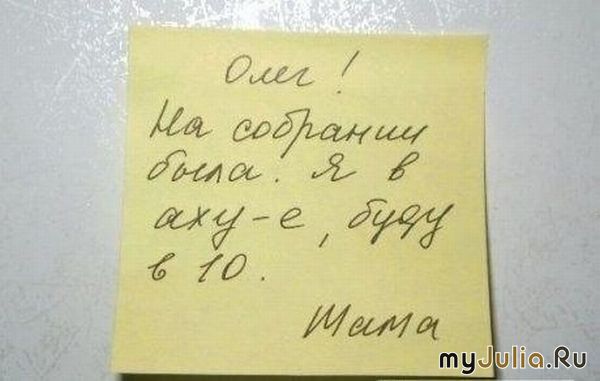 Олег!
На собрании
была. Я в
аху-е, буду
в 10.
Мама
myJulia.Ru